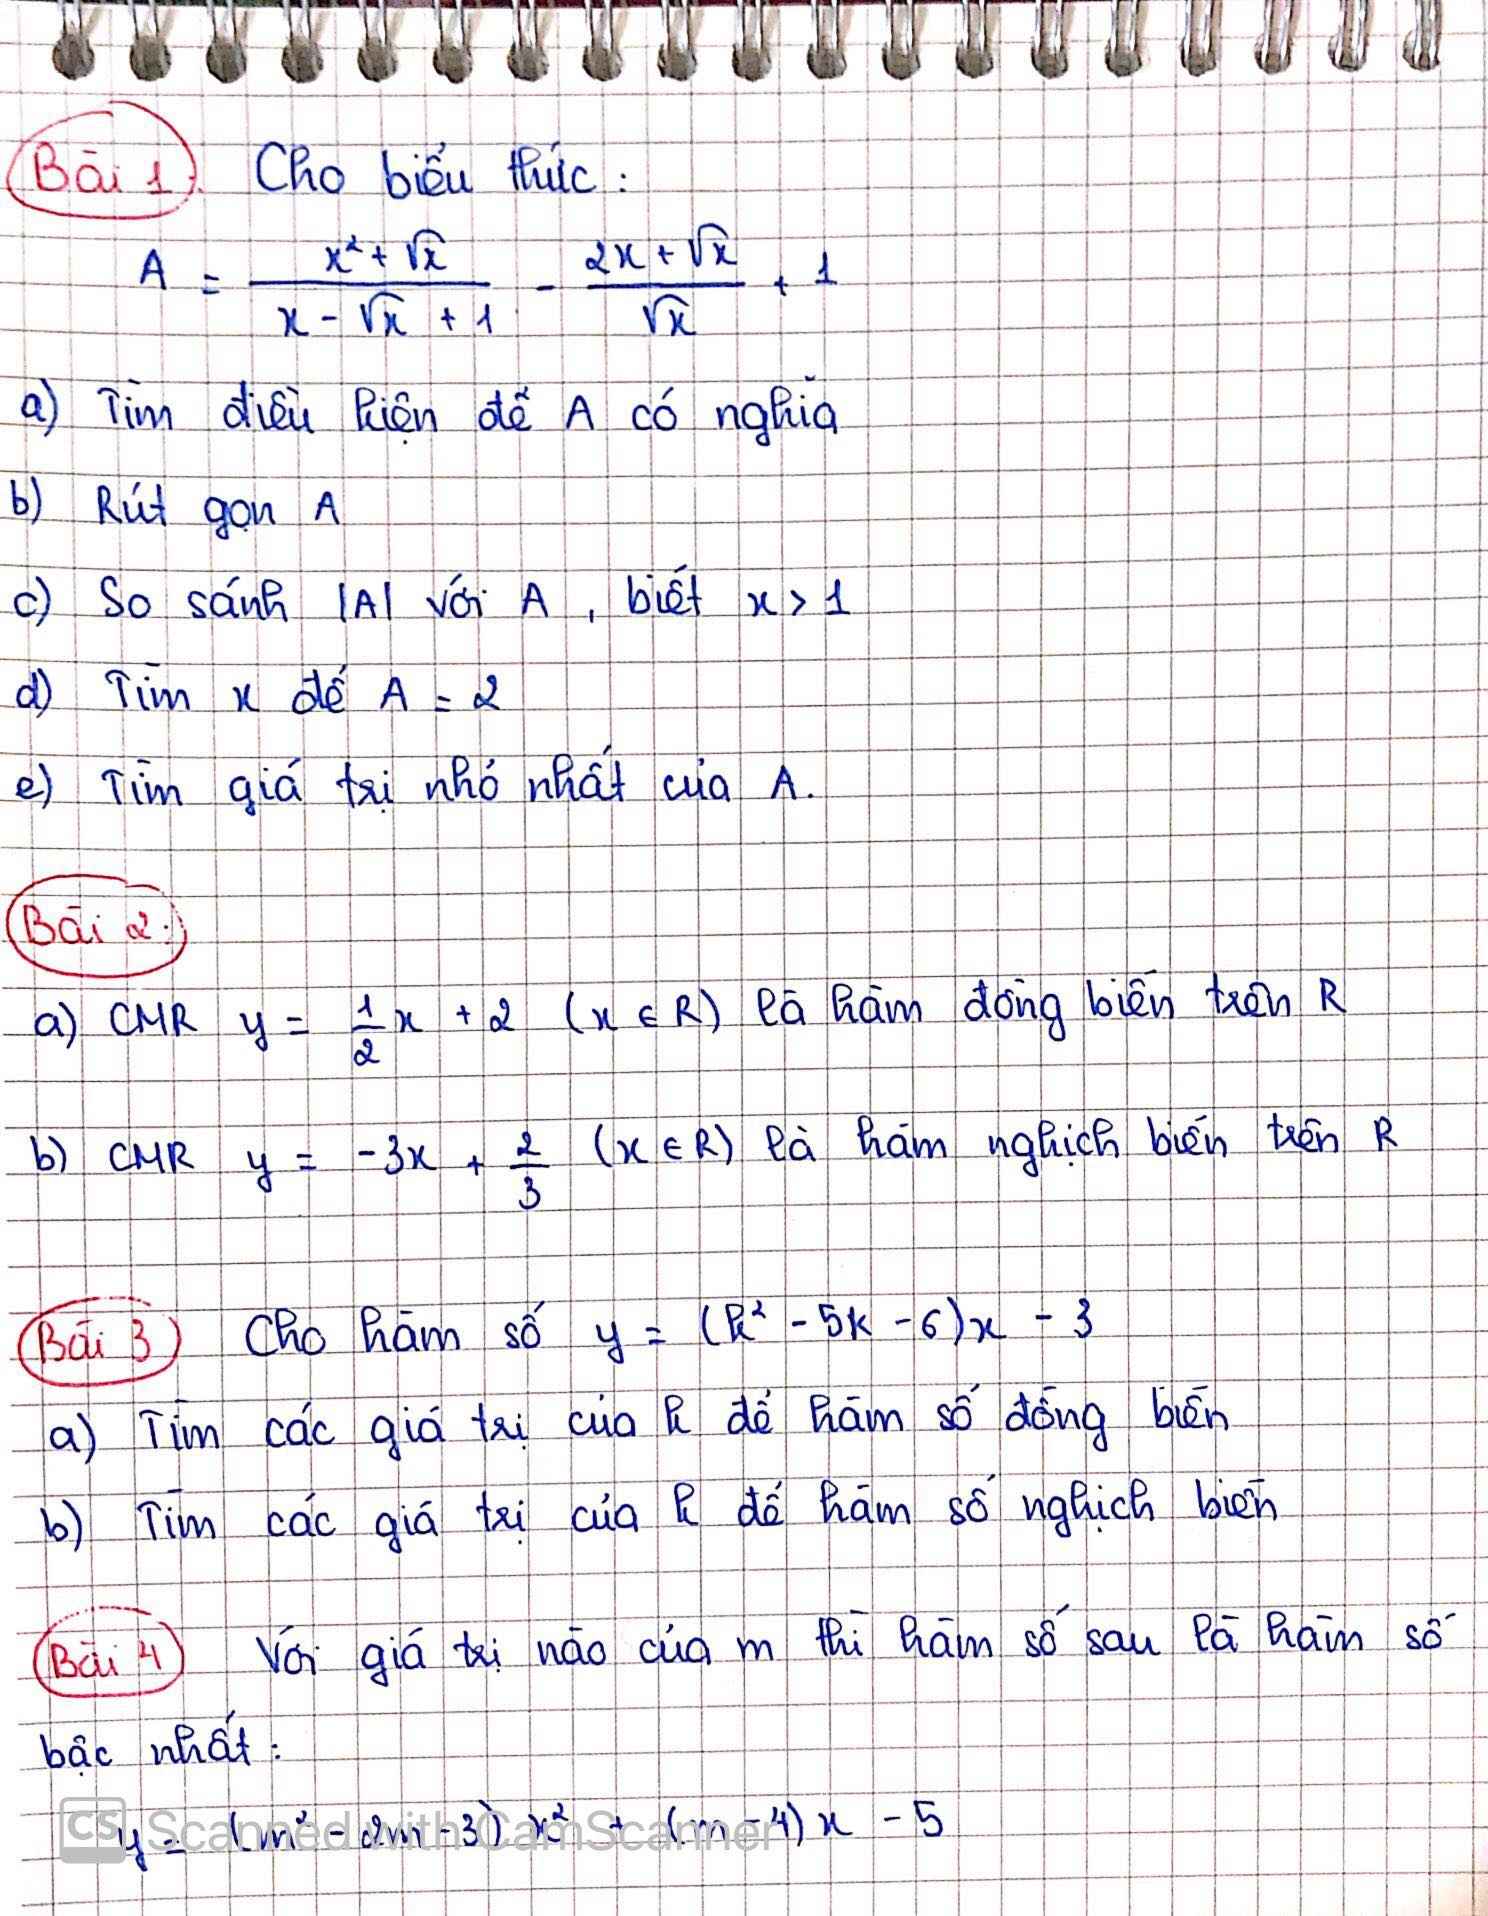 Bài 1. Cho biểu thức :
A = \frac{x² + √x}{x - √x + 1} - \frac{2x + √x}{√x} + 1
a) Tìm điều kiện để A có nghĩa
b) Rút gọn A
c) So sánh |A| với A , biết x > 1
d) Tìm x để A = 2
e) Tìm giá trị nhỏ nhất của A.
Bài 2 :
a) CMR y = \frac{1}{2}x + 2 (x ∈ R) là hàm đồng biến trên R
b) CMR y = -3x + \frac{2}{3} (x ∈ R) là hàm nghịch biến trên R
Bài 3 Cho hàm số y = (k² - 5k - 6)x - 3
a) Tìm các giá trị của k để hàm số đồng biến
b) Tìm các giá trị của k để hàm số nghịch biến
Bài 4 Với giá trị nào của m thì hàm số sau là hàm số
bậc nhất :
y = (m² - 2m - 3) x² + (m - 4) x - 5
CS Scanned with CamScanner